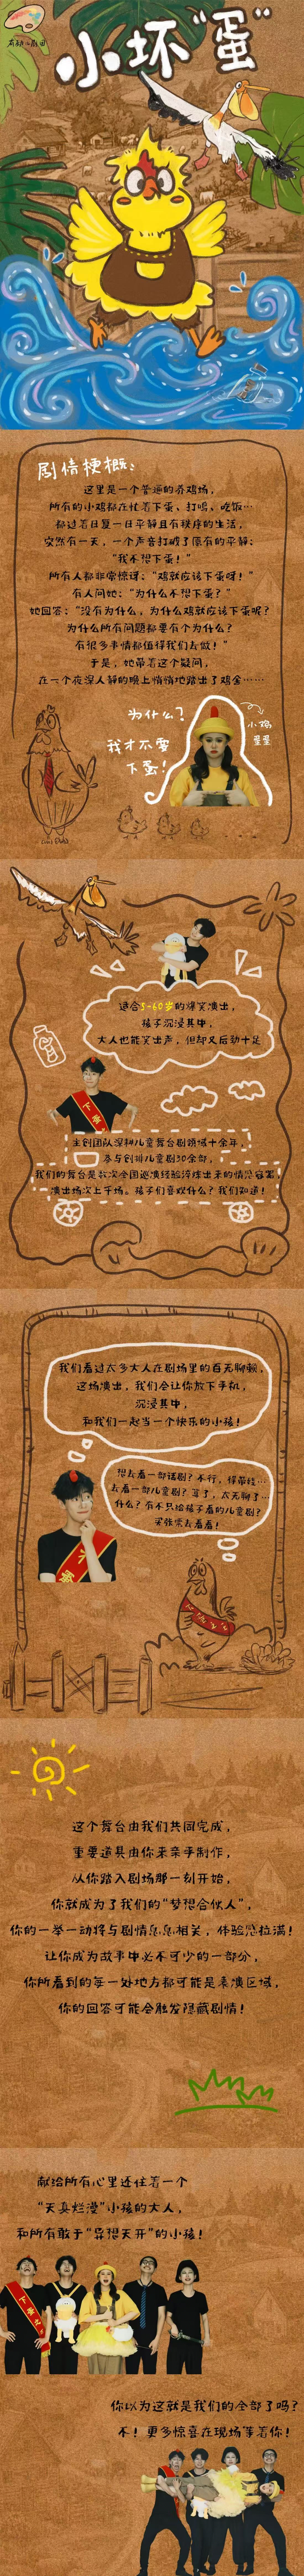 小坏“蛋”
剧情梗概：
这里是一个普通的养鸡场，
所有的小鸡都在忙着下蛋、打鸣、吃饭…
都过着日复一日平静且有秩序的生活，
突然有一天，一个声音打破了原有的平静：
“我不想下蛋！”
所有人都非常惊讶：“鸡就应该下蛋呀！”
有人问她：“为什么不想下蛋？”
她回答：“没有为什么，为什么鸡就应该下蛋呢？
为什么所有问题都要有个为什么？
有很多事情都值得我们去做！”
于是，她带着这个疑问，
在一个夜深人静的晚上悄悄地踏出了鸡舍……
为什么？
我才不要
下蛋！
小鸡
星星
适合3-60岁的爆笑演出，
孩子沉浸其中，
大人也能笑出声，但却又后劲十足
主创团队深耕儿童舞台剧领域十余年，
参与创排儿童剧30余部，
我们的舞台是数次全国巡演经验淬炼出来的情感容器，
演出场次上千场。孩子们喜欢什么？我们知道！
我们看过太多大人在剧场里的百无聊赖，
这场演出，我们会让你放下手机，
沉浸其中，
和我们一起当一个快乐的小孩！
想去看一部话剧？不行，得带娃…
去看一部儿童剧？算了，太无聊了…
什么？有不只给孩子看的儿童剧？
买张票去看看！
这个舞台由我们共同完成，
重要道具由你来亲手制作，
从你踏入剧场那一刻开始，
你就成为了我们的“梦想合伙人”，
你的一举一动将与剧情息息相关，体验感拉满！
让你成为故事中必不可少的一部分，
你所看到的每一处地方都可能是表演区域，
你的回答可能会触发隐藏剧情！
献给所有心里还住着一个
“天真烂漫”小孩的大人，
和所有敢于“异想天开”的小孩！
你以为这就是我们的全部了吗？
不！更多惊喜在现场等着你！